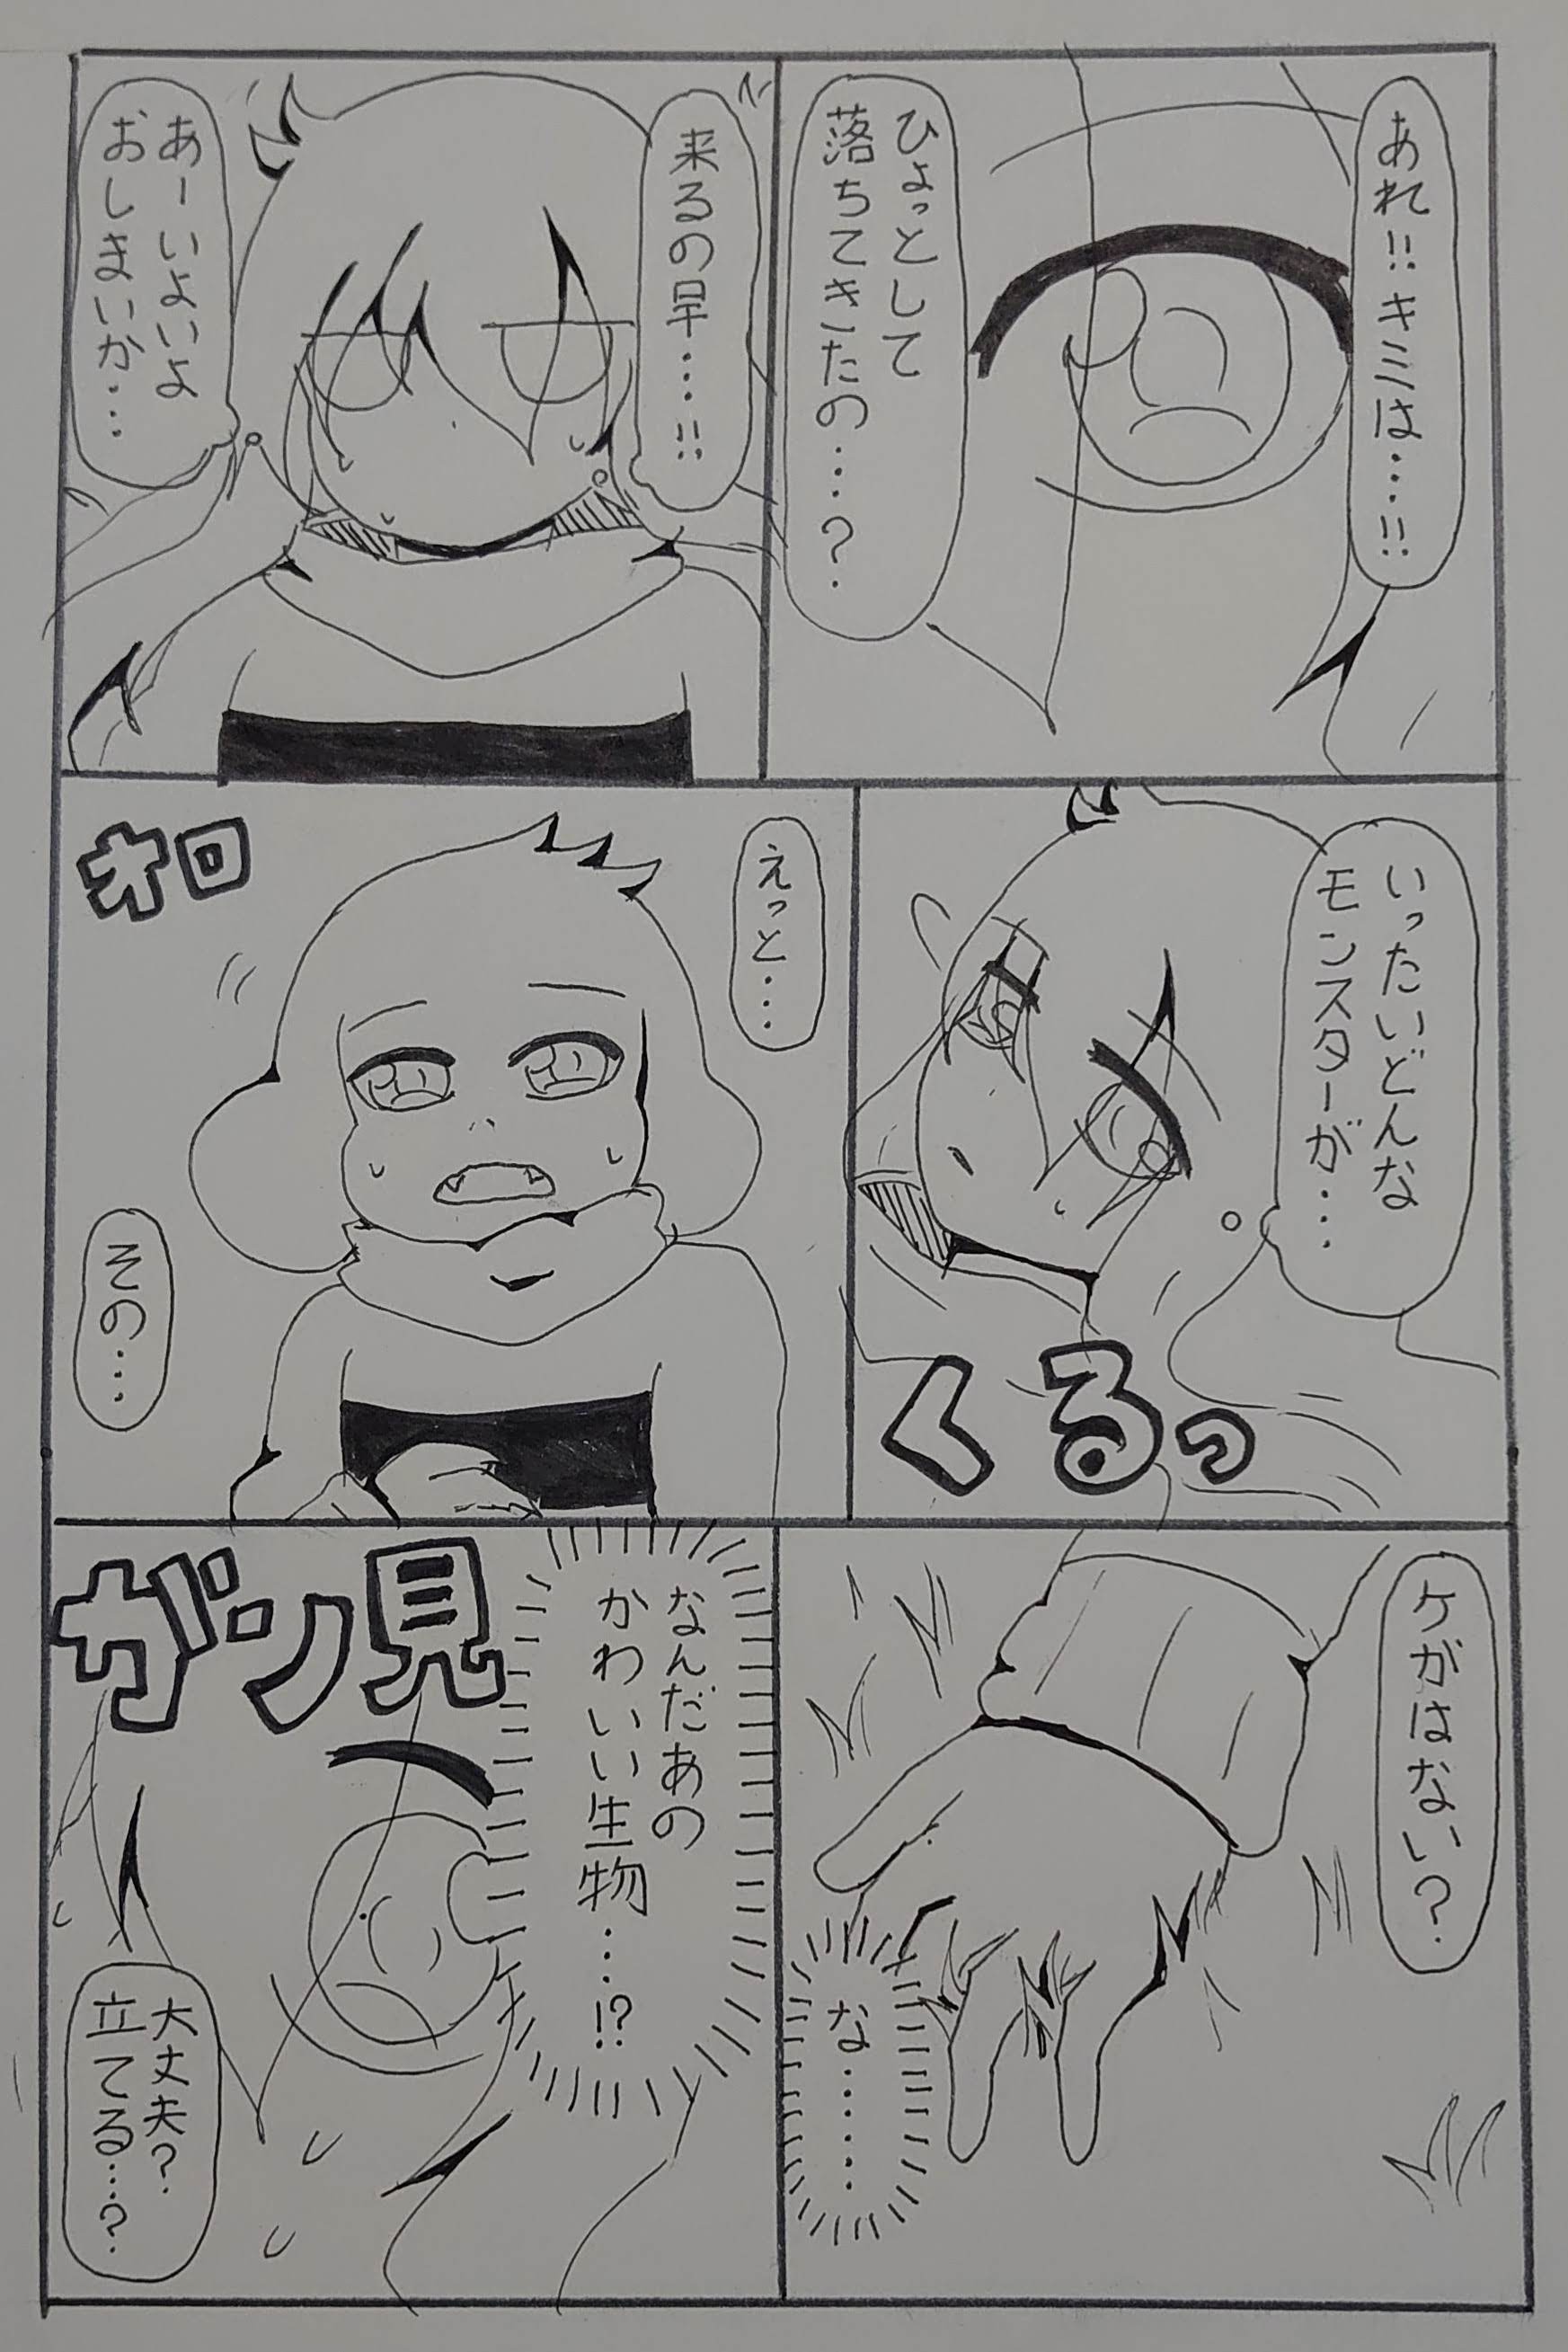 あれ!!キミは・・・!!
ひょっとして
落ちてきたの・・・?
来るの早・・・!!
あーいよいよ
おしまいか・・・
いったいどんな
モンスターが・・・
くるっ
えっと・・・
オロ
その・・・
ケがはない?
な・・・・・・
なんだあの
かわいい生物・・・!?
ガン見
大丈夫?
立てる・・・?